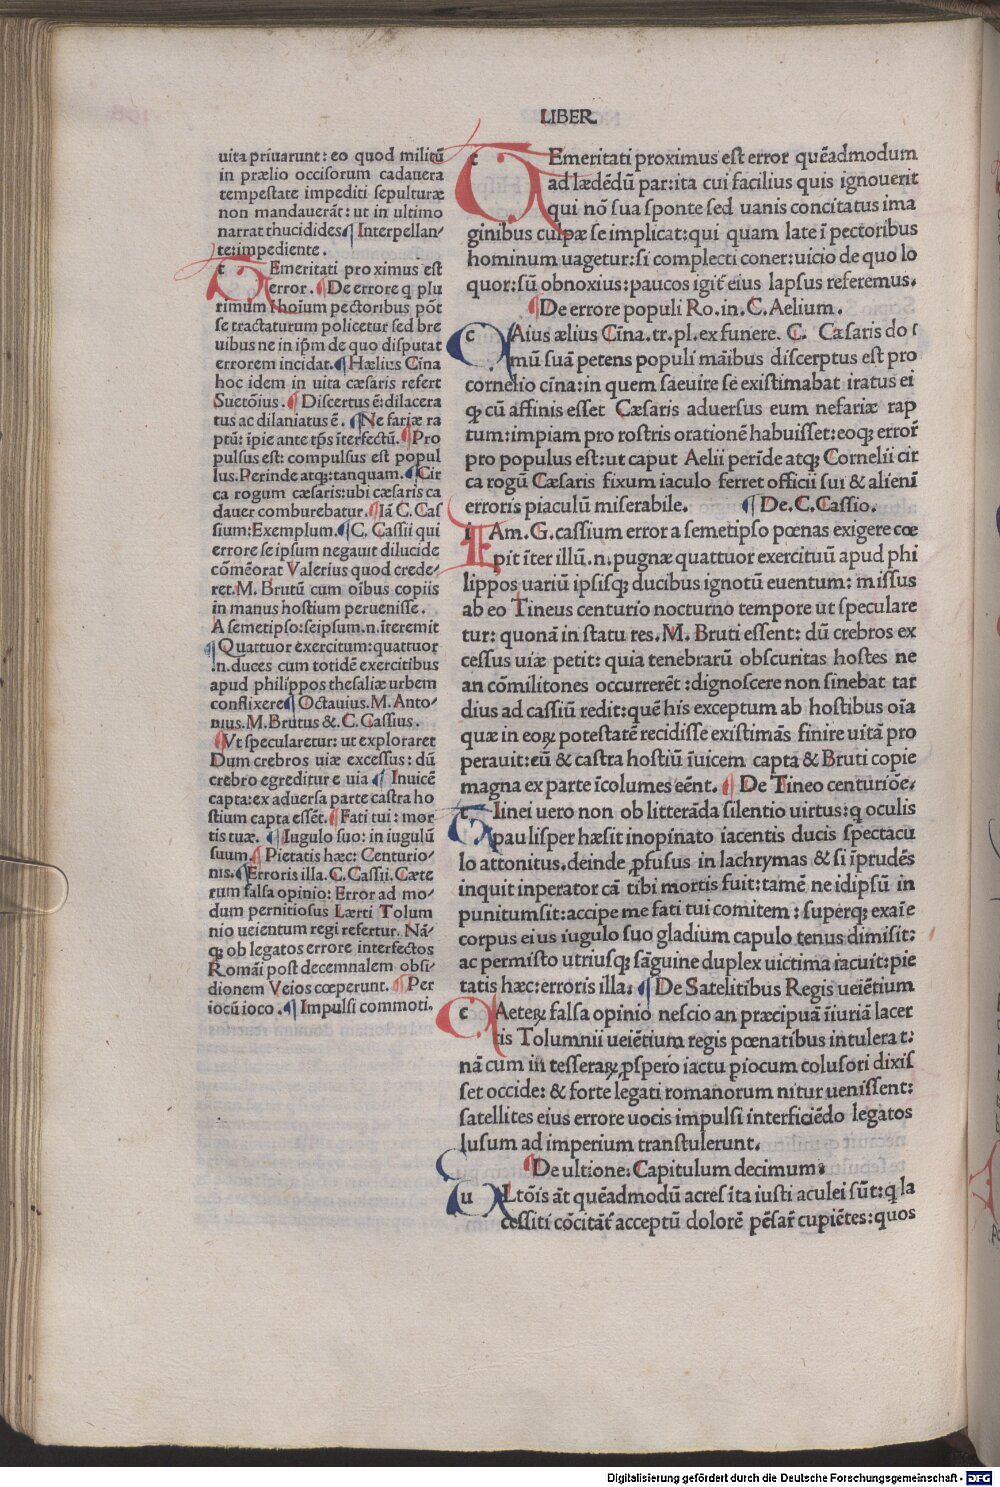 LIBER
uita priuarunt: eo quod militū
in prælio occisorum cadauera
tempestate impediti sepulturæ
non mandauerāt: ut in ultimo
narrat thucidides. ¶ Interpellan-
te: impediente.
tEmeritati proximus est
error. ¶ De errore q plu
rimum hoīum pectoribus pōt
se tractaturum policetur sed bre
uibus ne in ip̄m de quo disputat
errorem incidat. ¶ Hælius Cīna
hoc idem in uita cæsaris refert
Suetōius. ¶ Discertus ē: dilacera
tus ac dilaniatus ē. ¶ Ne fariæ ra
ptū: īpie ante tp̄s īterfectū. ¶ Pro
pulsus est: compulsus est popul
lus. Perinde atq;: tanquam. ¶ Cir
ca rogum cæsaris: ubi cæsaris ca
dauer comburebatur. ¶ Iā C. Cas
sium: Exemplum. ¶ C. Cassii qui
errore se ipsum negauit dilucide
cōmēorat Valerius quod crede-
ret. M. Brutū cum oībus copiis
in manus hostium peruenisse.
A semetipso: seipsum. n. īteremit
¶ Quattuor exercitum: quattuor
.n. duces cum totidē exercitibus
apud philippos thesaliæ urbem
conflixere ¶ Octauius. M. Anto-
nius. M. Brutus &. C. Cassius.
¶ Vt specularetur: ut exploraret
Dum crebros uiæ excessus: dū
crebro egreditur e uia ¶ Inuicē
capta: ex aduersa parte castra ho
stium capta essēt. ¶ Fati tui: mor
tis tuæ. ¶ Iugulo suo: in iugulū
suum. ¶ Pietatis hæc: Centurio-
nis. ¶ Erroris illa. C. Cassii. Cæte
rum falsa opinio: Error ad mo-
dum pernitiosus Lærti Tolum
nio ueientum regi refertur. Nā-
q; ob legatos errore interfectos
Romāi post decemnalem obsi-
dionem Veios cœperunt. ¶ Per
iocū ioco. ¶ Impulsi commoti.
tEmeritati proximus est error quēadmodum
ad lædēdū par: ita cui facilius quis ignouerit
qui nō sua sponte sed uanis concitatus ima
ginibus culpæ se implicat: qui quam late ī pectoribus
hominum uagetur: si complecti coner: uicio de quo lo
quor: sū obnoxius: paucos igit̄ eius lapsus referemus.
¶ De errore populi Ro. in. C. Aelium.
cAius ælius Cīna. tr. pl. ex funere. C. Cæsaris do
mū suā petens populi māibus discerptus est pro
cornelio cina: in quem saeuire se existimabat iratus ei
q; cū affinis esset Cæsaris aduersus eum nefariæ rap
tum: impiam pro rostris orationē habuisset: eoq; error̄
pro populus est: ut caput Aelii perīde atq; Cornelii cir
ca rogū Cæsaris fixum iaculo ferret officii sui & alieni
erroris piaculū miserabile. ¶ De. C. Cassio.
iAm. G. cassium error a semetipso pœnas exigere cœ
pit īter illū. n. pugnæ quattuor exercituū apud phi
lippos uariū ipsisq; ducibus ignotū euentum: missus
ab eo Tineus centurio nocturno tempore ut speculare
tur: quonā in statu res. M. Bruti essent: dū crebros ex
cessus uiæ petit: quia tenebrarū obscuritas hostes ne
an cōmilitones occurrerēt: dignoscere non sinebat tar
dius ad cassiū redit: quē his exceptum ab hostibus oīa
quæ in eoꝝ potestatē recidisse existimās finire uitā pro
perauit: eū & castra hostiū īuicem capta & Bruti copie
magna ex parte īcolumes eēnt. ¶ De Tineo centuriōe.
tIinei uero non ob litterāda silentio uirtus: q oculis
paulisper hæsit inopinato iacentis ducis spectacu
lo attonitus. deinde ꝓfusus in lachrymas & si īprudēs
inquit inperator cā tibi mortis fuit: tamē ne idipsū in
punitumsit: accipe me fati tui comitem: superq; exaīe
corpus eius iugulo suo gladium capulo tenus dimisit:
ac permisto utriusq; sāguine duplex uictima iacuit: pie
tatis hæc: erroris illa: ¶ De Satelitibus Regis ueiētium
cAeteꝝ falsa opinio nescio an præcipuā īiuriā lacer
tis Tolumnii ueiētium regis pœnatibus intulerat:
nā cum in tesseraꝝ ꝓspero iactu ꝑiocum colusori dixis
set occide: & forte legati romanorum nitur uenissent:
satellites eius errore uocis impulsi interficiēdo legatos
lusum ad imperium transtulerunt.
¶ De ultione: Capitulum decimum:
uLtōis āt quēadmodū acres ita iusti aculei sūt: q la
cessiti cōcitāt̄ acceptū dolorē pēsar̄ cupiētes: quos
Digitalisierung gefördert durch die Deutsche Forschungsgemeinschaft - DFG